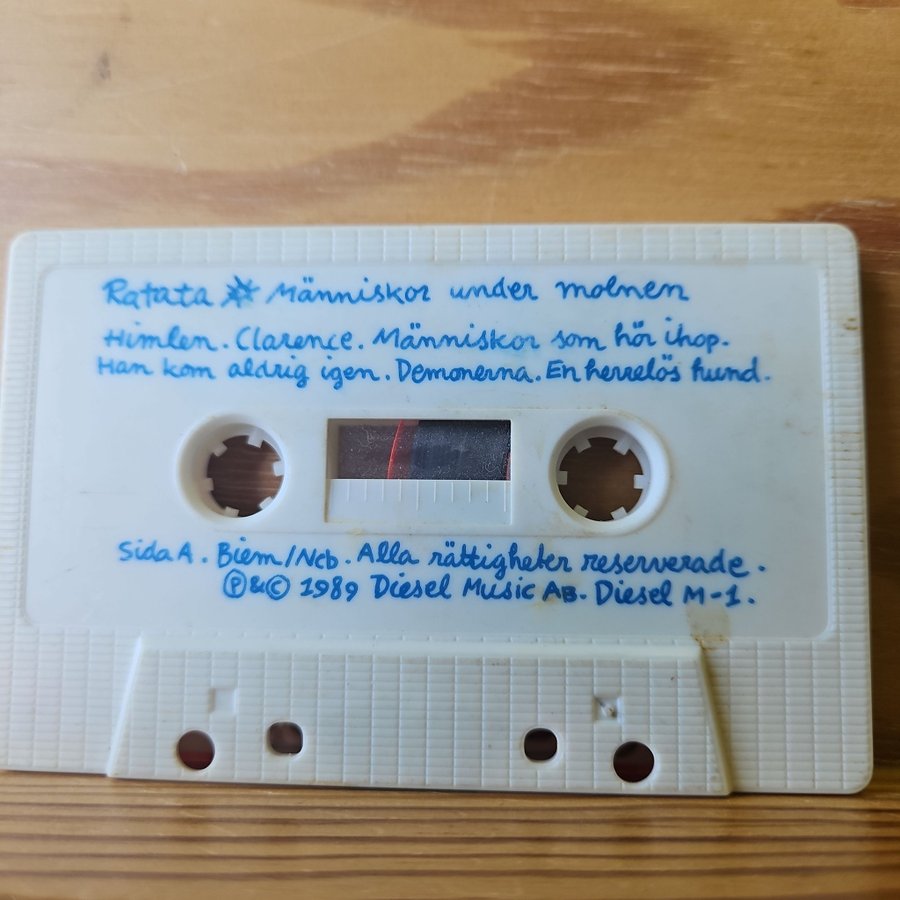 Ratata * Människor under molnen
Himlen. Clarence. Människor som hör ihop.
Han kom aldrig igen. Demonerna. En herrelös hund.
Sida A. Biem/Ncb. Alla rättigheter reserverade.
Ⓟ&© 1989 Diesel Music AB. Diesel M-1.